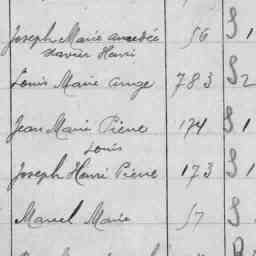 Joseph Marie Amedée 56 S 1
Xavier Henri
Louis Marie Ange 783 S 2
Jean Marie Pierre 174 S 1
Louis
Joseph Henri Pierre 173 S 1
Marcel Marie 57 S